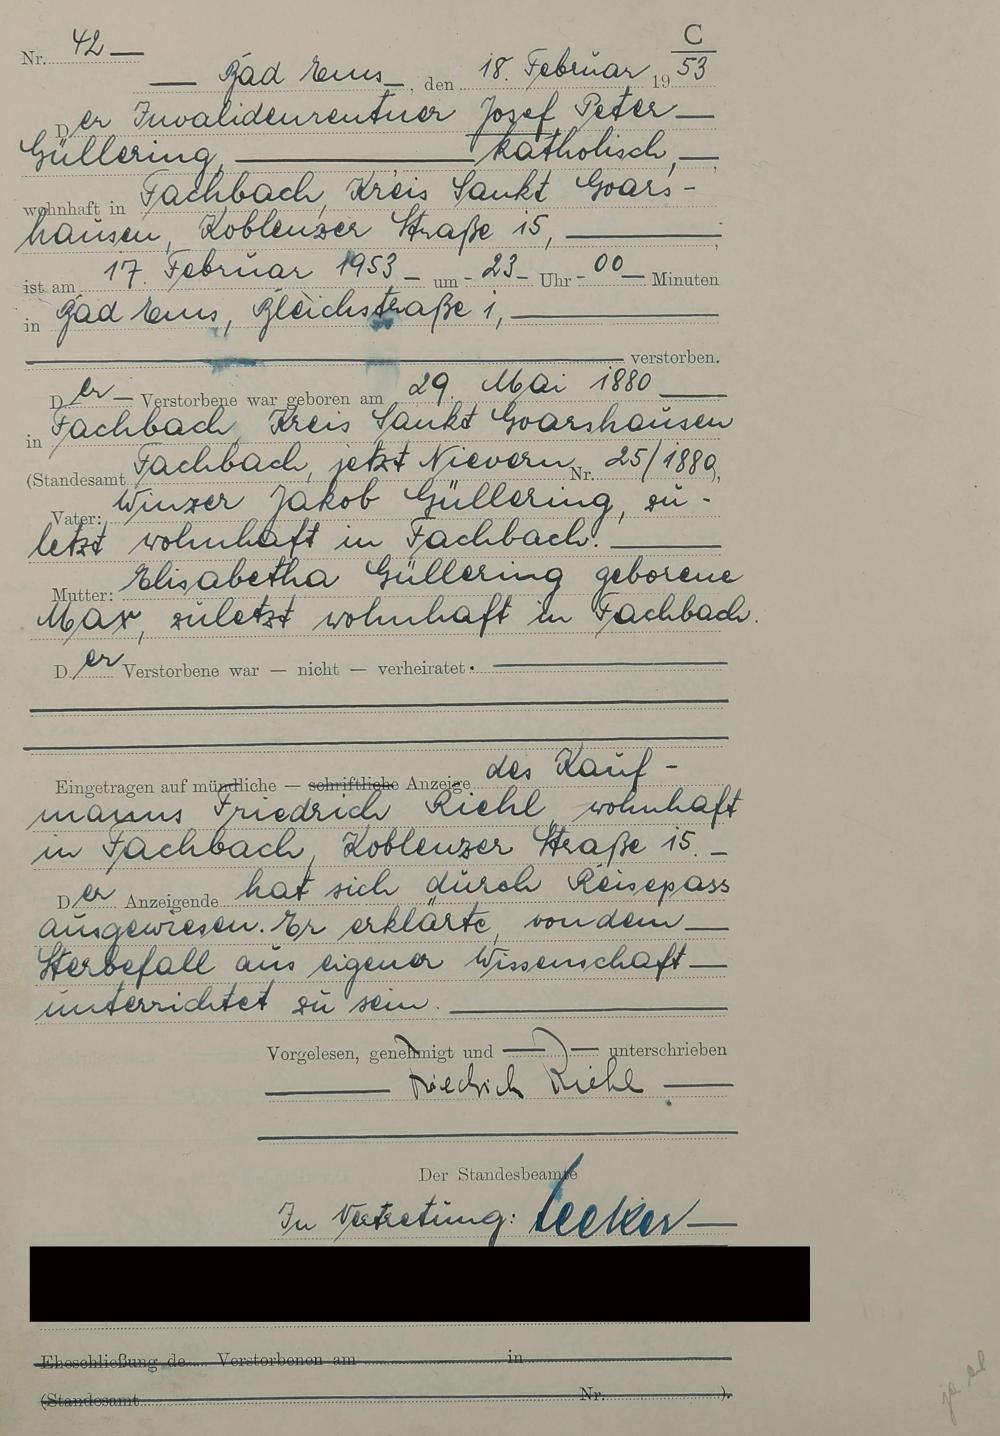 C
Nr. 42
Bad Ems, den 18. Februar 1953
Der Invalidenrentner Josef Peter
Güllering, katholisch,
wohnhaft in Fachbach, Kreis Sankt Goars-
hausen, Koblenzer Straße 15,
ist am 17. Februar 1953 um 23 Uhr 00 Minuten
in Bad Ems, Bleichstraße 1,
verstorben.
Der Verstorbene war geboren am 29. Mai 1880
in Fachbach, Kreis Sankt Goarshausen
(Standesamt Fachbach, jetzt Nievern Nr. 25/1880),
Vater: Winzer Jakob Güllering, zu-
letzt wohnhaft in Fachbach.
Mutter: Elisabetha Güllering geborene
Max, zuletzt wohnhaft in Fachbach.
Der Verstorbene war — nicht — verheiratet.
Eingetragen auf mündliche — schriftliche Anzeige des Kauf-
manns Friedrich Riehl, wohnhaft
in Fachbach, Koblenzer Straße 15.
Der Anzeigende hat sich durch Reisepass
ausgewiesen. Er erklärte, von dem
Sterbefall aus eigener Wissenschaft
unterrichtet zu sein.
Vorgelesen, genehmigt und unterschrieben
Friedrich Riehl
Der Standesbeamte
In Vertretung:
Eheschließung de Verstorbenen am in
(Standesamt Nr. ).